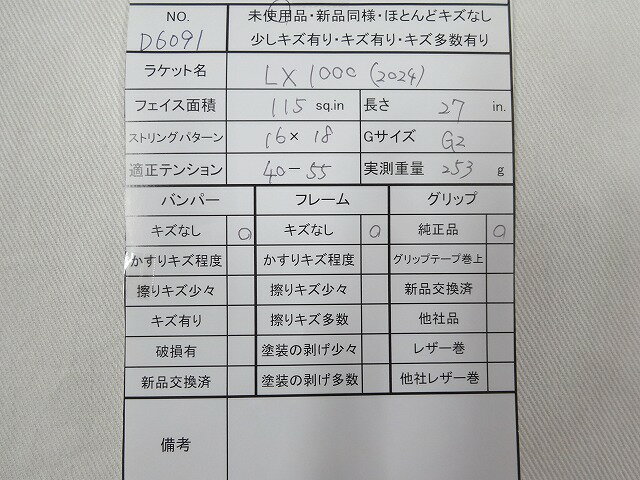 NO. 未使用品・新品同様・ほとんどキズなし
D6091 少しキズ有り・キズ有り・キズ多数有り
ラケット名 LX1000 (2024)
フェイス面積 115 sq.in 長さ 27 in.
ストリングパターン 16×18 Gサイズ G2
適正テンション 40-55 実測重量 253 g
バンパー フレーム グリップ
キズなし ○ キズなし ○ 純正品 ○
かすりキズ程度 かすりキズ程度 グリップテープ巻上
擦りキズ少々 擦りキズ少々 新品交換済
キズ有り 擦りキズ多数 他社品
破損有 塗装の剥げ少々 レザー巻
新品交換済 塗装の剥げ多数 他社レザー巻
備考